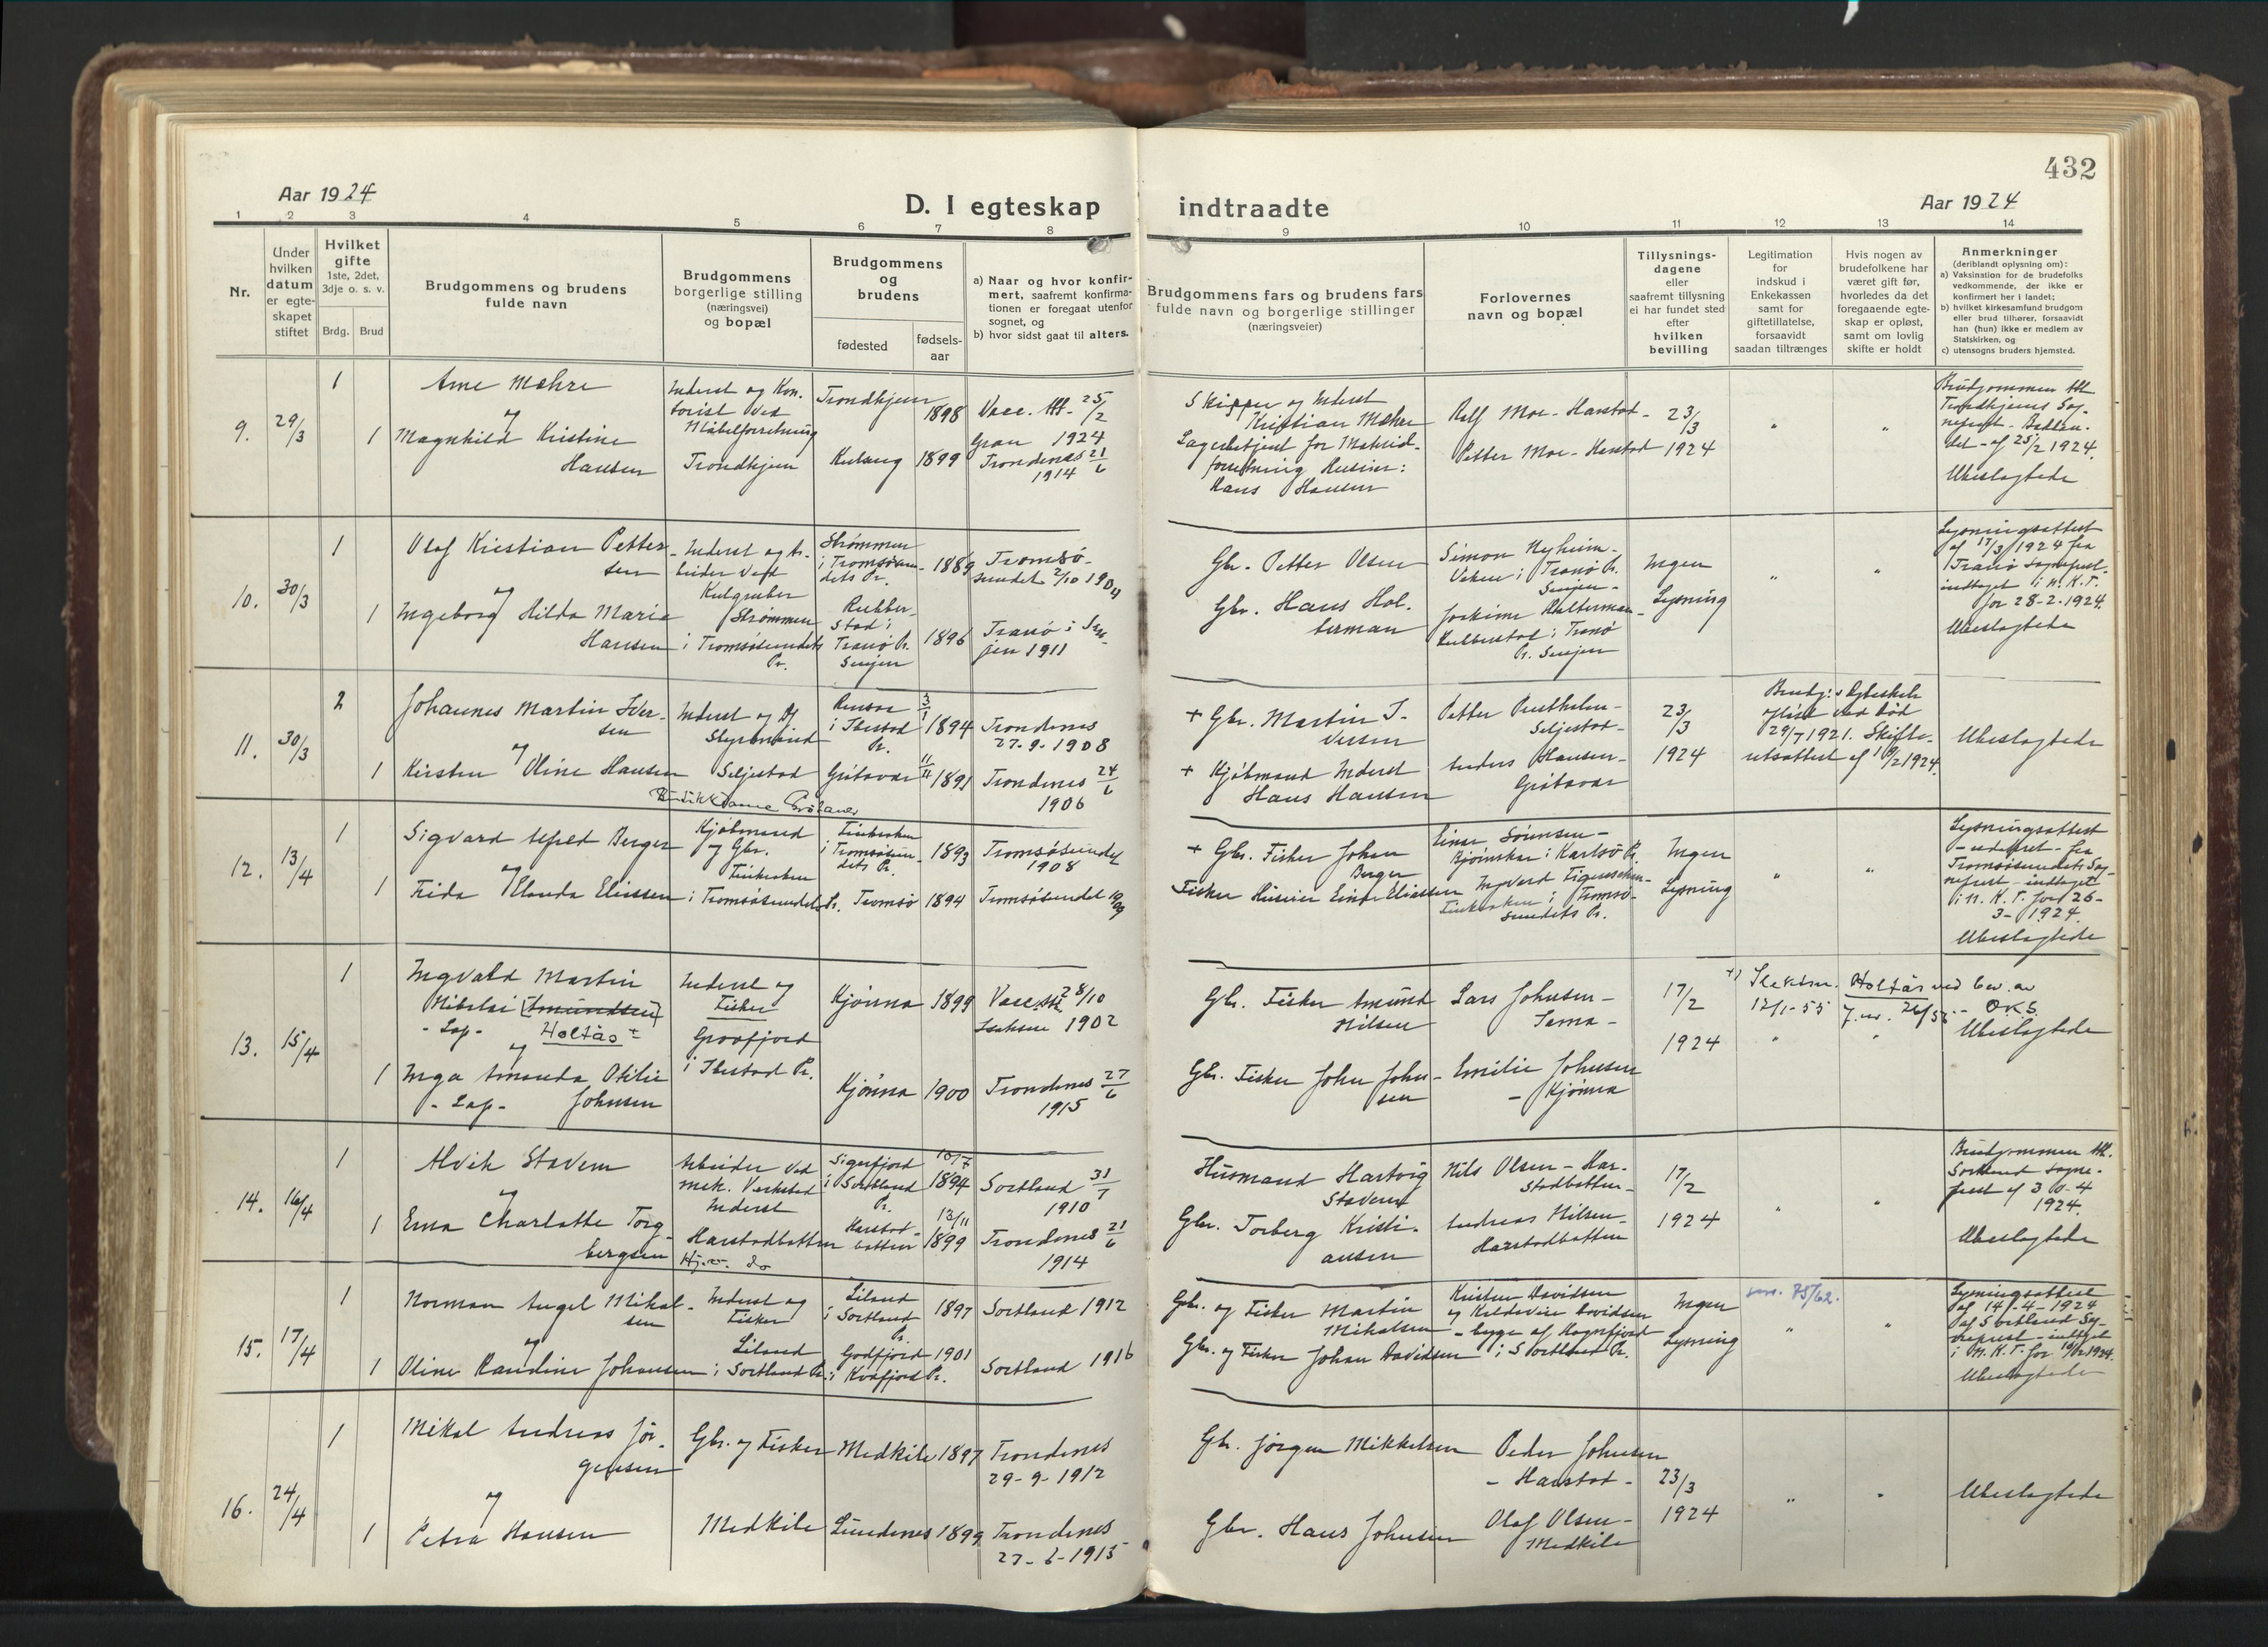 432
Aar 1924
D. I egteskap
indtraadte
Aar 1924
1 2 3 4 5 6 7 8 9 10 11 12 13 14
Nr.
Under
hvilken
datum
er egte-
skapet
stiftet
Hvilket
gifte
1ste, 2det,
3dje o. s. v.
Brdg.
Brud
Brudgommens og brudens
fulde navn
Brudgommens
borgerlige stilling
(næringsvei)
og bopæl
Brudgommens
og
brudens
fødested
fødsels-
aar
a) Naar og hvor konfir-
mert, saafremt konfirma-
tionen er foregaat utenfor
sognet, og
b) hvor sidst gaat til alters.
Brudgommens fars og brudens fars
fulde navn og borgerlige stillinger
(næringsveier)
Forlovernes
navn og bopæl
Tillysnings-
dagene
eller
saafremt tillysning
ei har fundet sted
efter
hvilken
bevilling
Legitimation
for
indskud i
Enkekassen
samt for
giftetillatelse,
forsaavidt
saadan tiltrænges
Hvis nogen av
brudefolkene har
været gift før,
hvorledes da det
foregaaende egte-
skap er opløst,
samt om lovlig
skifte er holdt
Anmerkninger
(deriblandt oplysning om):
a) Vaksination for de brudefolks
vedkommende, der ikke er
konfirmert her i landet;
b) hvilket kirkesamfund brudgom
eller brud tilhører, forsaavidt
han (hun) ikke er medlem av
Statskirken, og
c) utensogns bruders hjemsted.
9.
29/3
1
1
Arne Mæhre
og
Magnhild Kristine
Hansen
Inderst og Kon-
torist ved
Møbelforretning
Trondhjem
Trondhjem
1898
1899
Vacc. Att. 25/2
1924
Trondenes 21/6
1914
Skipper og Inderst
Kristian Mæhre
Hans Hansen
Rolf Moe - Harstad -
Petter Moe - Harstad
23/3
1924
Brudgommen Att.
Trondhjems Sog-
af 25/2 1924.
Ubeslægtede
10.
30/3
1
1
Olaf Kristian Petter-
sen
og
Ingeborg Hilda Marie
Hansen
Inderst og Ar-
beider ved
Kulgruber
Strømmen
i Tromsøsundets
Pr.
Strømmen
i Tromsøsun-
dets Pr.
1889
Tranø Pr.
Senjen
1896
Tromsø-
sundet 2/10 1904
Tranø i Sen-
jen 1911
Gbr. Petter Olsen
Gbr. Hans Hol-
terman
Simon Nyheim -
i Tranø Pr.
Senjen -
i Tranø
Pr. Senjen
Ingen
Lysning
Lysningsattest
af 17/3 1924 fra
Tranø Sogneprest.
indtaget i N. K. T.
for 28-2-1924.
Ubeslægtede
11.
30/3
2
1
Johannes Martin Iver-
sen
og
Kirsten Oline Hansen
Inderst og
Styrmand
Seljestad
Butikkdame Grötavær
i Ibestad
Pr.
3/1
1894
Grötavær
11/11
1891
Trondenes
27-9-1908
Trondenes 24/6
1906
+ Gbr. Martin I-
versen
+ Kjøbmand Inderst
Hans Hansen
Seljestad -
Anders Hansen -
Grötavær
23/3
1924
Brudg:s Egteskab
opløst ved Død
29/7 1921. Skifte-
retsattest af 19/2 1924.
Ubeslægtede
12.
13/4
1
1
Sigvard Alfred Berger
og
Frida Wanda Eliassen
Kjøbmand
og Gbr.
Finkroken
i Tromsøsundets Pr.
Finkroken
i Tromsøsun-
dets Pr.
1893
Tromsø
1894
Tromsøsundet
1908
Tromsøsundet
+ Gbr. Fisker Johan
Berger
Fisker Huseier Einar Eliassen
Einar Sørensen -
i Karlsø Pr.
Finkroken i Tromsø-
sundets Pr.
Ingen
Lysning
Lysningsattest
- udateret - fra
Tromsøsundets Sog-
neprest - indtaget
i N. K. T. for 26-
3-1924.
Ubeslægtede
13.
15/4
1
1
Ingvald Martin
Nikolai [Amundsen]
- Lap -
Holtås +
og
Inga Amanda Otilie
- Lap -
Johnsen
Inderst og
Fisker
Grovfjord
i Ibestad Pr.
Kjønna
1899
Kjønna
1900
Vacc. Att 28/10
1902
Trondenes 27/6
1915
Gbr. Fisker Amund
Nilsen
Gbr. Fisker John John-
sen
Lars Johnsen -
Sama -
Emilie Johnsen
- Kjønna
17/2
1924
+) Slektsn. Holtås ved bev. av
12/1-55 J.nr. 26/55 - O.K.S.
Ubeslægtede
14.
16/4
1
1
Alvik Stavem
og
Erna Charlotte Torg-
bergsen
Arbeider ved
mek. Verksted
Inderst
Harstadbotten
Hj.v. do
Sigerfjord
i Sortland
Pr.
10/7
1894
Harstad-
botten
13/11
1899
Sortland 31/7
1910
Trondenes 21/6
1914
Husmand Hartvig
Stavem
Gbr. Torberg Kristi-
ansen
Nils Olsen - Har-
stadbotten -
Andreas Nilsen -
Harstadbotten
17/2
1924
Brudgommen Att.
Sortland Sogne-
prest af 30-4
1924.
Ubeslægtede
15.
17/4
1
1
Norman Angel Mikal-
sen
og
Oline Randine Johansen
Inderst og
Fisker
Liland
i Sortland Pr.
Liland
i Sortland
Pr.
1897
Godfjord
i Kvæfjord Pr.
1901
Sortland 1912
Sortland 1916
Gbr. og Fisker Martin
Mikalsen
Gbr. og Fisker Johan Davidsen
Kristen Davidsen
og Davidsen
i Sortland Pr.
Ingen
Lysning
75/62.
Lysningsattest
af 14-4-1924
af Sortland Sog-
neprest - indtaget
i N. K. T. for
Ubeslægtede
16.
24/4
1
1
Mikal Andreas Jør-
gensen
og
Petra Hansen
Gbr. og Fisker
Medkile
Medkile
1897
Lundenes
1899
Trondenes
29-9-1912
Trondenes
27-6-1915
Gbr. Jørgen Mikkelsen
Gbr. Hans Johnsen
Peder Johnsen
- Harstad -
Olaf Olsen -
Medkile
23/3
1924
Ubeslægtede